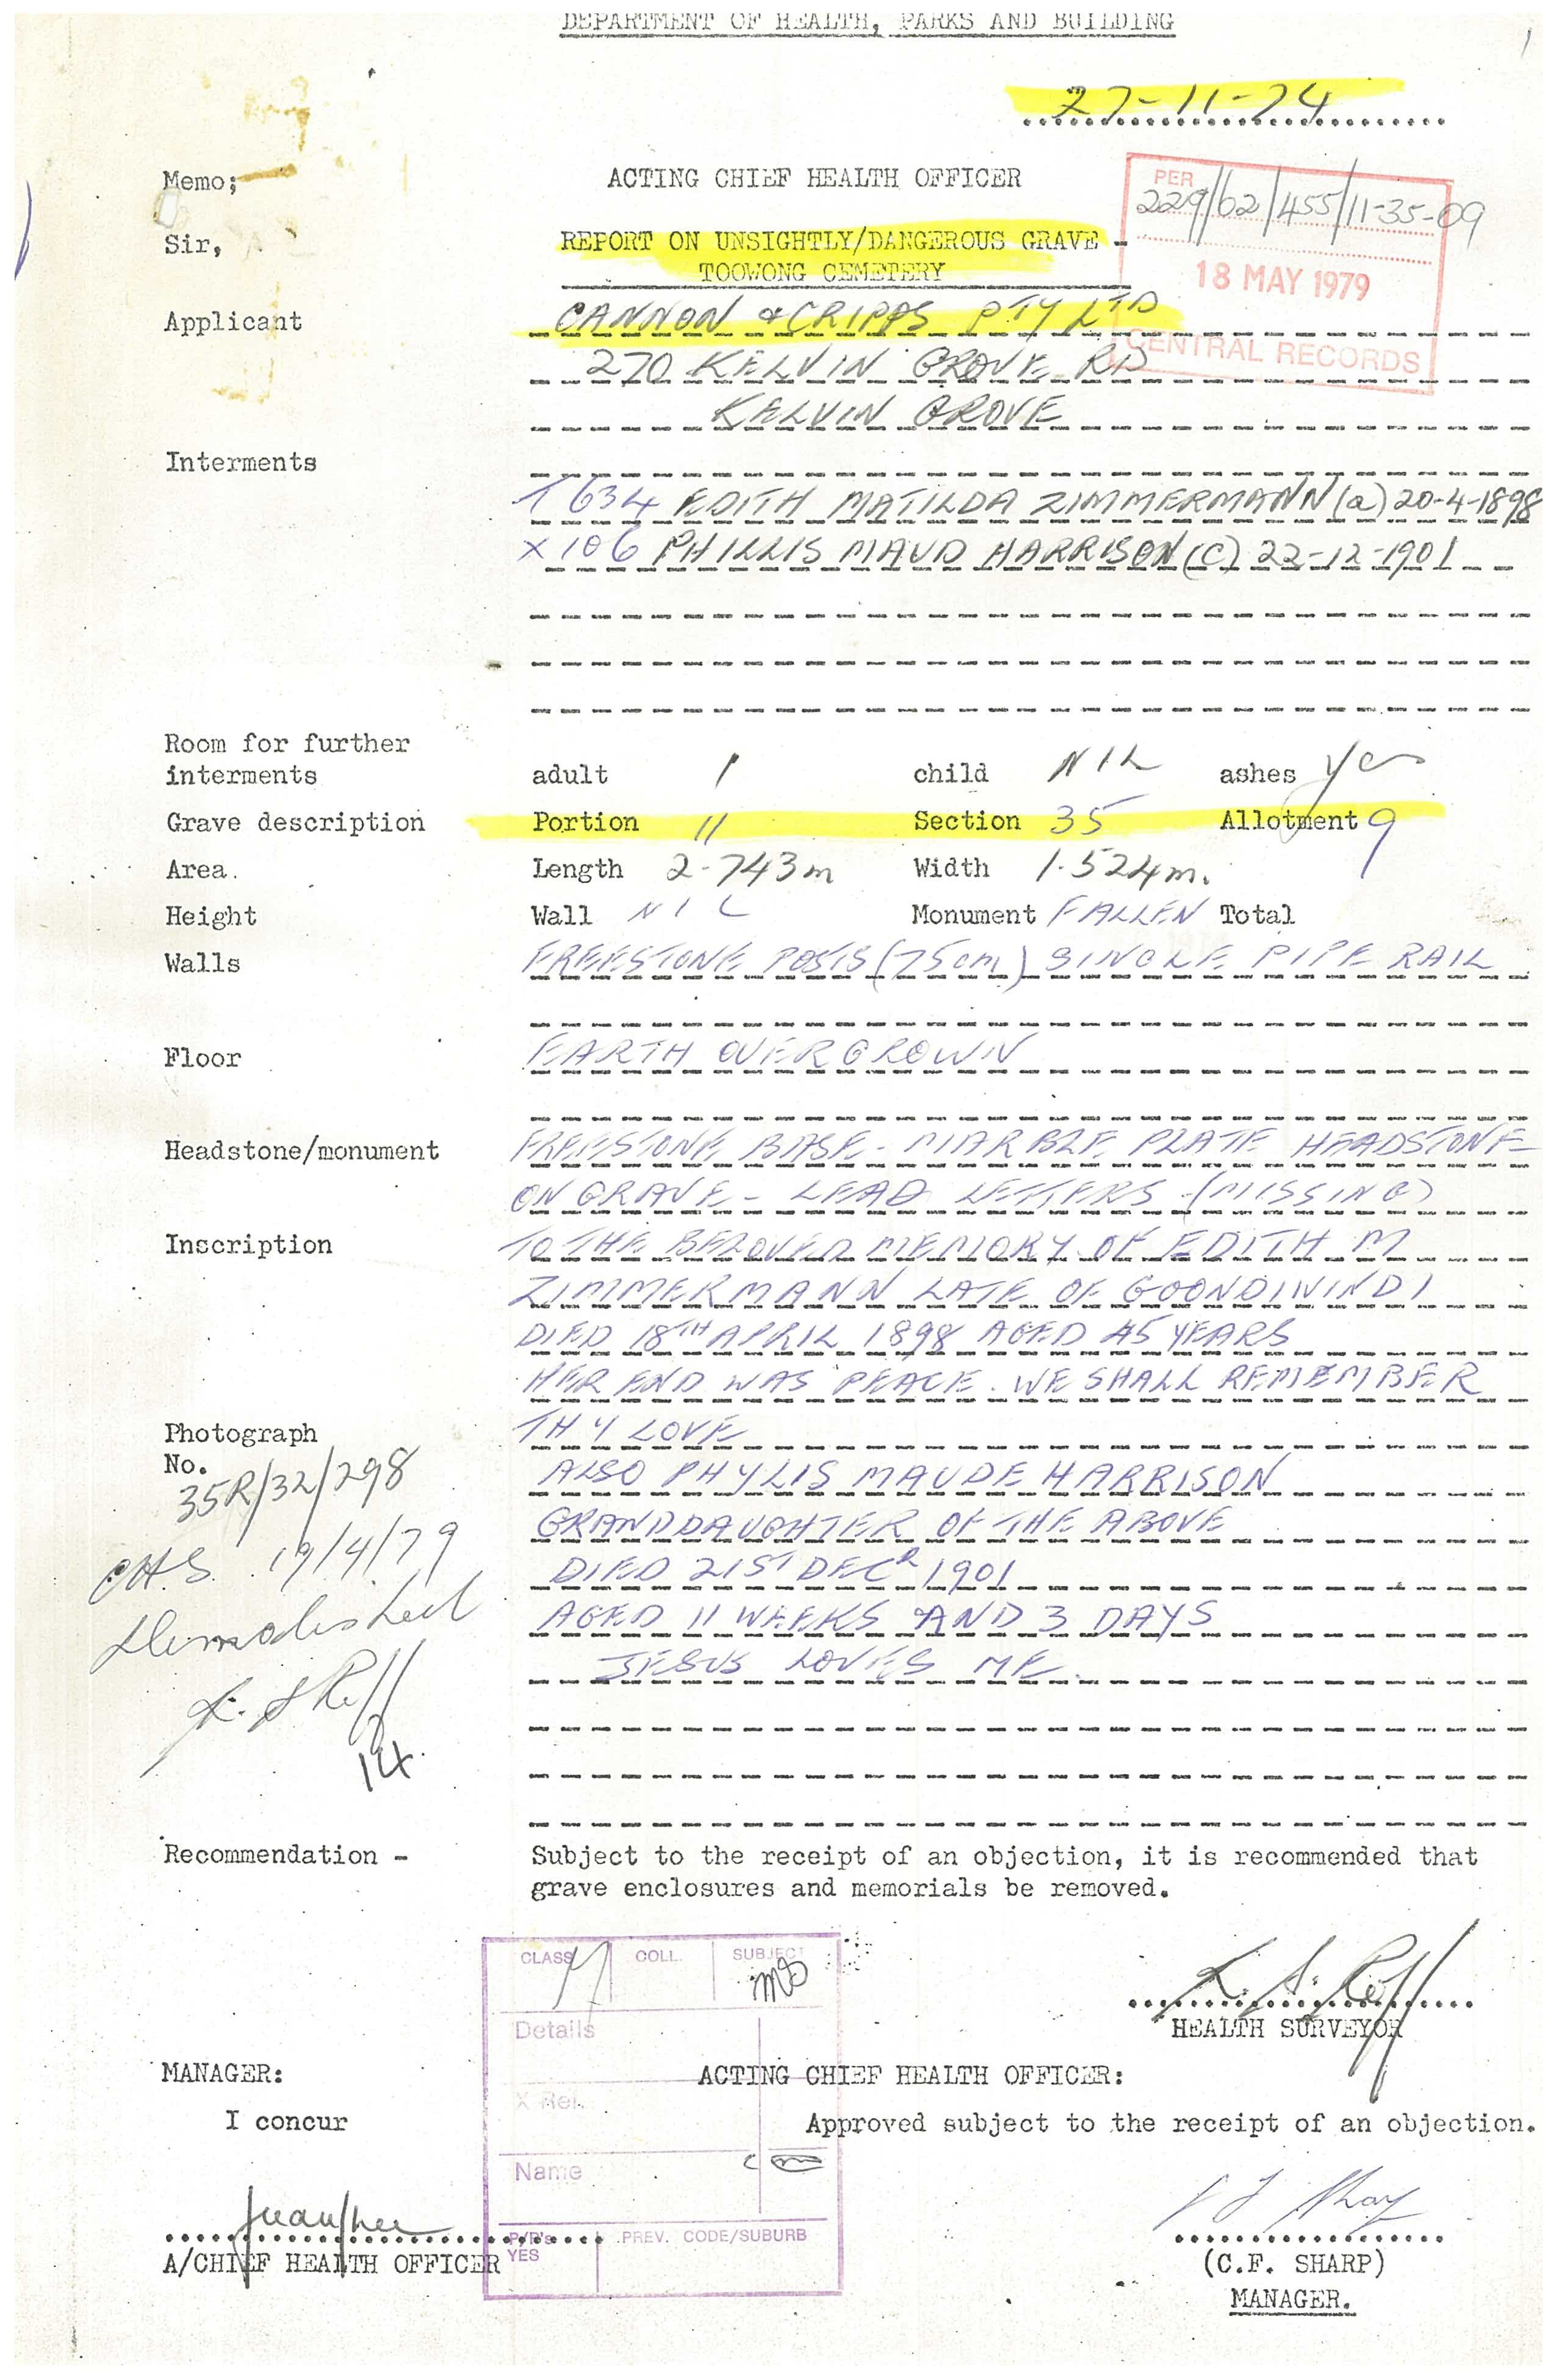 DEPARTMENT OF HEALTH, PARKS AND BUILDING
27-11-74
Memo; ACTING CHIEF HEALTH OFFICER
PER
229/62/455/11-35-09
18 MAY 1979
CENTRAL RECORDS
Sir, REPORT ON UNSIGHTLY/DANGEROUS GRAVE -
TOOWONG CEMETERY
Applicant CANNON & CRIPPS PTY LTD
270 KELVIN GROVE RD
KELVIN GROVE
Interments
T634 EDITH MATILDA ZIMMERMANN (a) 20-4-1898
X106 PHILLIS MAUD HARRISON (C) 22-12-1901
Room for further
interments adult 1 child NIL ashes yes
Grave description Portion 11 Section 35 Allotment 9
Area. Length 2.743m Width 1.524m.
Height Wall NIL Monument FALLEN Total
Walls FREESTONE POSTS (75cm) SINGLE PIPE RAIL
Floor EARTH OVERGROWN
Headstone/monument FREESTONE BASE - MARBLE PLATE HEADSTONE
ON GRAVE - LEAD LETTERS (MISSING)
Inscription TO THE BELOVED MEMORY OF EDITH M
ZIMMERMANN LATE OF GOONDIWINDI
DIED 18TH APRIL 1898 AGED 45 YEARS
HER END WAS PEACE. WE SHALL REMEMBER
Photograph THY LOVE
No. 35R/32/298
ALSO PHYLIS MAUDE HARRISON
GRANDDAUGHTER OF THE ABOVE
19/4/79 DIED 21ST DECR 1901
Demolished AGED 11 WEEKS AND 3 DAYS
JESUS LOVES ME.
14.
Recommendation - Subject to the receipt of an objection, it is recommended that
grave enclosures and memorials be removed.
CLASS COLL. SUBJECT
Details
X Ref.
Name
P/R's PREV. CODE/SUBURB
YES
HEALTH SURVEYOR
MANAGER: ACTING CHIEF HEALTH OFFICER:
I concur Approved subject to the receipt of an objection.
A/CHIEF HEALTH OFFICER (C.F. SHARP)
MANAGER.